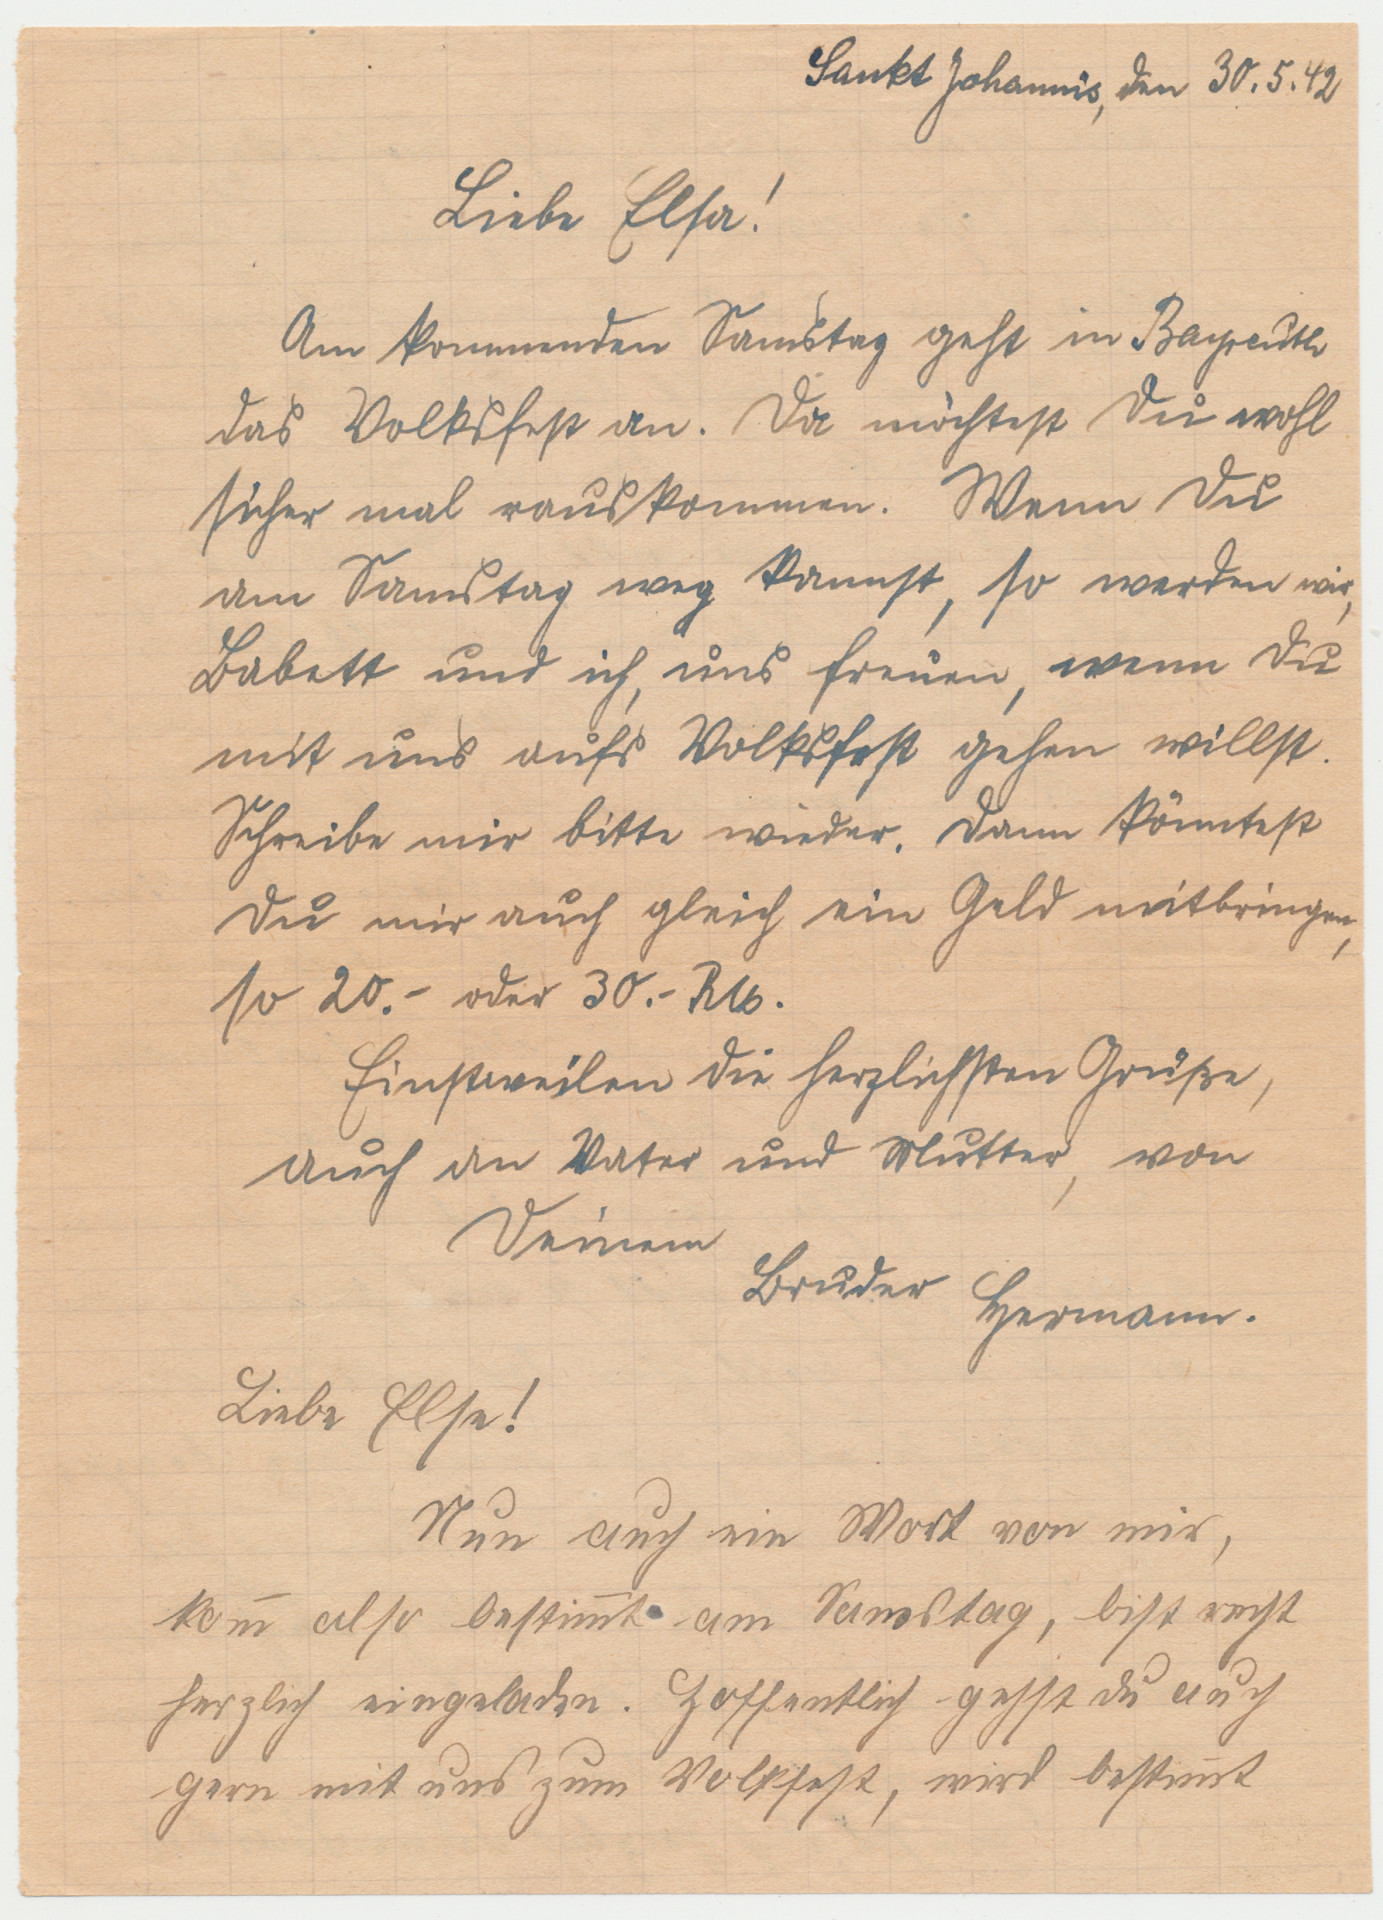 Sankt Johannis, den 30.5.42
Liebe Elsa!
Am kommenden Samstag geht in Bayreuth
das Volksfest an. Da möchtest Du wohl
sicher mal rauskommen. Wenn Du
am Samstag weg kannst, so werden wir,
Babett und ich, uns freuen, wenn Du
mit uns aufs Volksfest gehen willst.
Schreibe mir bitte wieder. Dann könntest
Du mir auch gleich ein Geld mitbringen,
so 20.- oder 30.- RM.
Einstweilen die herzlichsten Grüße,
auch an Vater und Mutter, von
Deinem
Bruder Hermann.
Liebe Else!
Nun auch ein Wort von mir,
kom̅ also bestim̅t am Samstag, bist recht
herzlich eingeladen. Hoffentlich gehst du auch
gern mit uns zum Volkfest, wird bestim̅t